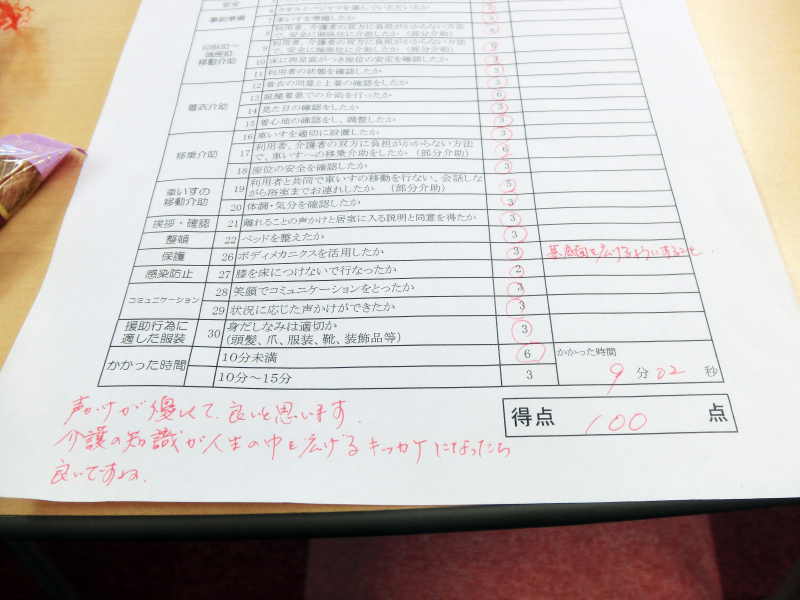 安全
6 タオルとパジャマを選んでいただいたか 3
事前準備
7 車いすを準備したか 3
8 利用者、介護者の双方に負担がかからない方法
で、安全に側臥位に介助したか（部分介助） 6
仰臥位～
端座位
移動介助
9 利用者、介護者の双方に負担がかからない方法
で、安全に端座位に介助したか（部分介助） 6
10 床に両足底がつき座位の安定を確認したか 3
11 利用者の状態を確認したか 3
着衣介助
12 着衣の同意と上着の確認をしたか 3
13 脱健着患での介助を行ったか 6
14 見た目の確認をしたか 3
15 着心地の確認をし、調整したか 3
移乗介助
16 車いすを適切に設置したか 3
17 利用者、介護者の双方に負担がかからない方法
で、車いすへの移乗介助をしたか（部分介助） 6
18 座位の安全を確認したか 3
車いすの
移動介助
19 利用者と共同で車いすの移動を行ない、会話しな
がら浴室までお連れしたか （部分介助） 5
20 体調・気分を確認したか 3
挨拶・確認 21 離れることの声かけと居室に入る説明と同意を得たか 3
整頓 22 ベッドを整えたか 3
保護 26 ボディメカニクスを活用したか 3 基底面を広げるようにすること。
感染防止 27 膝を床につけないで行なったか 2
コミュニケーション
28 笑顔でコミュニケーションをとったか 3
29 状況に応じた声かけができたか 3
援助行為に
適した服装
30 身だしなみは適切か
（頭髪、爪、服装、靴、装飾品等） 3
かかった時間
10分未満 6
10分～15分 3
かかった時間
9 分 02 秒
得点 100 点
声かけが優しくて、良いと思います。
介護の知識が人生の中を広げるキッカケになったら
良いですね。